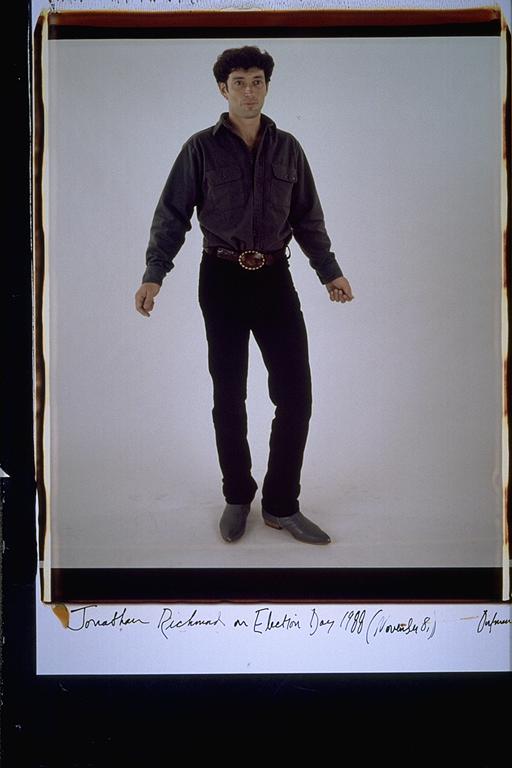 Jonathan Richman on Election Day 1988 (November 8,)